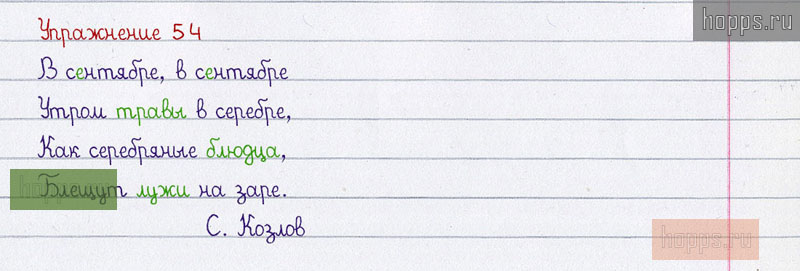 hopps.ru
Упражнение 54
В сентябре, в сентябре
Утром травы в серебре,
Как серебряные блюдца,
Блещут лужи на заре.
С. Козлов
hopps.ru